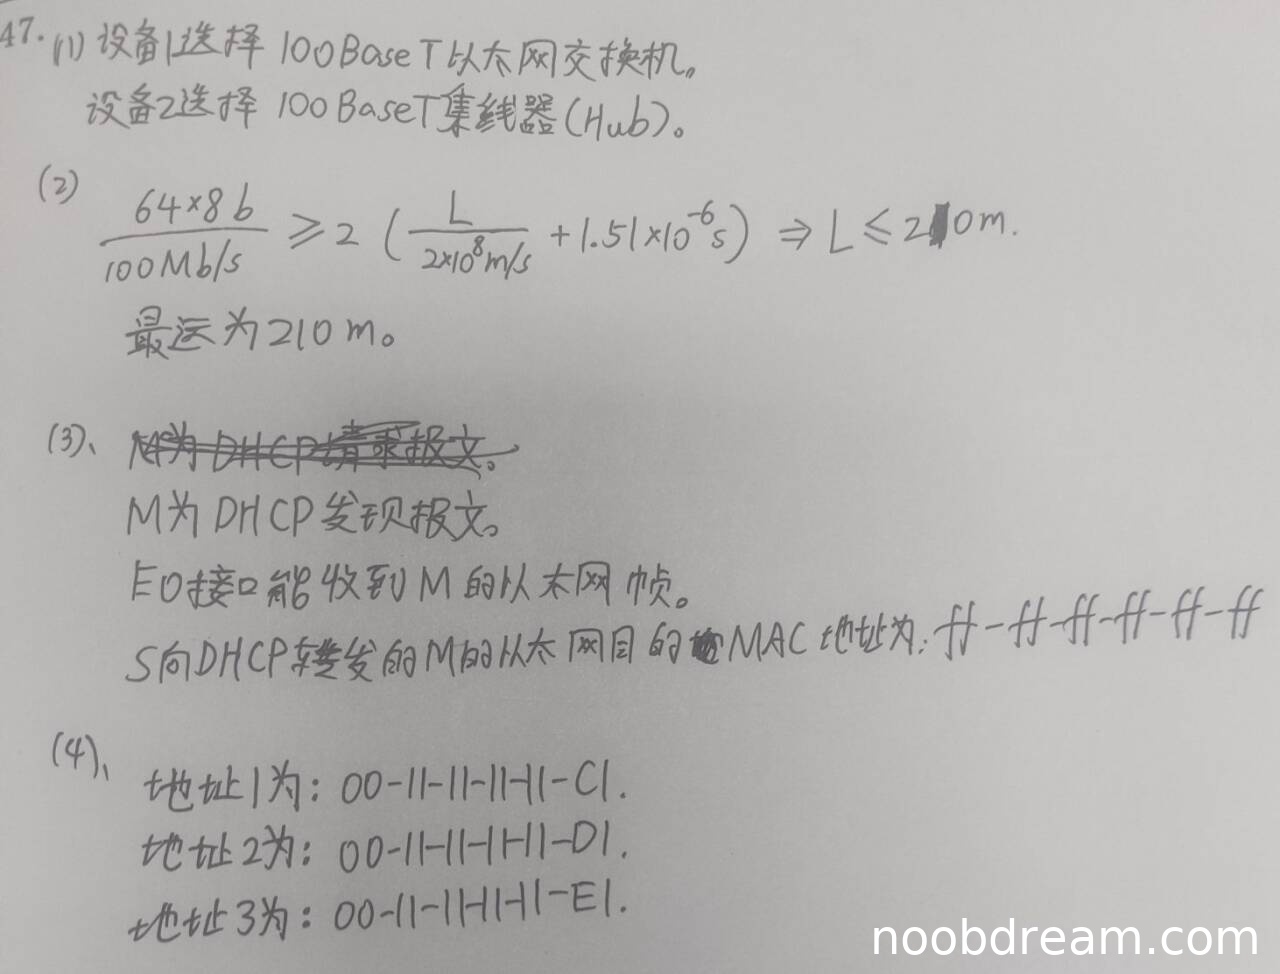 47. (1) 设备1选择 100BaseT以太网交换机。
设备2选择 100BaseT集线器(Hub)。
(2) 64×8b / 100Mb/s ≥ 2 ( L / 2×10⁸m/s + 1.51×10⁻⁶s ) ⇒ L ≤ 210m.
最远为210m。
(3)、 M为DHCP请求报文。
M为DHCP发现报文。
E0接口能收到M的以太网帧。
S向DHCP转发的M的以太网目的MAC地址为: ff-ff-ff-ff-ff-ff
(4)、
地址1为: 00-11-11-11-11-C1.
地址2为: 00-11-11-11-11-D1.
地址3为: 00-11-11-11-11-E1.
noobdream.com